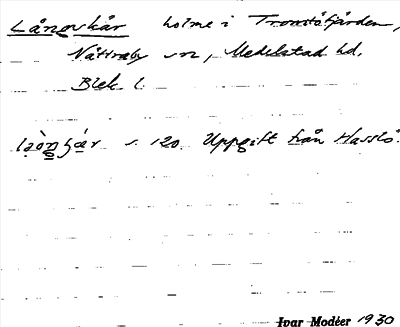 Långskär holme i Tromtöfjärden,
Nättraby sn, Medelstad hd,
Blek l.
s. 120. Uppgift från Hasslö.
Ivar Modéer 1930